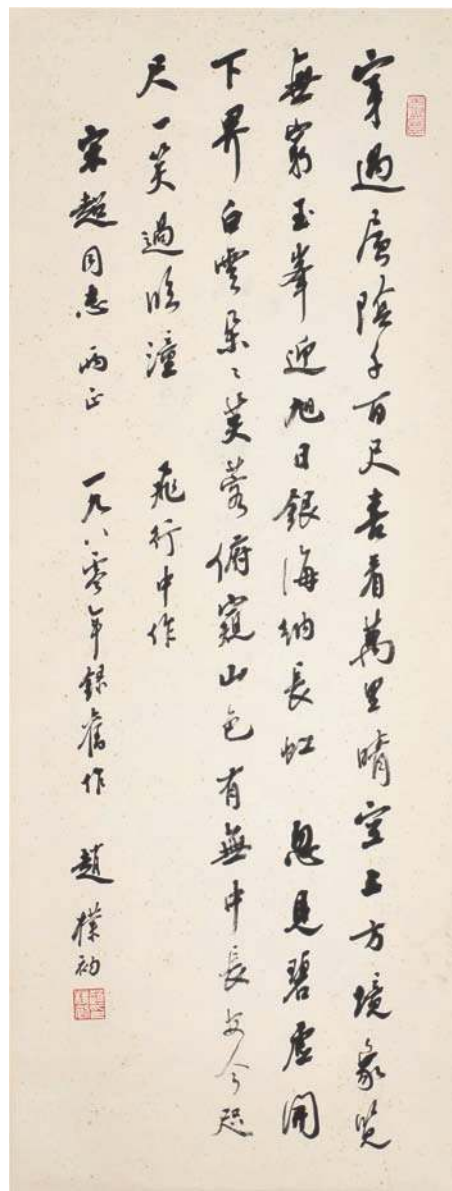 穿過層陰千百尺喜看萬里晴空上方境象覽
無窮玉峯迎旭日銀海納長虹 忽見碧虛開
下界白雲朵〻芙蓉俯窺山色有無中長安今咫
尺一笑過臨潼 飛行中作
宋超同志兩正 一九八零年錄舊作 趙樸初